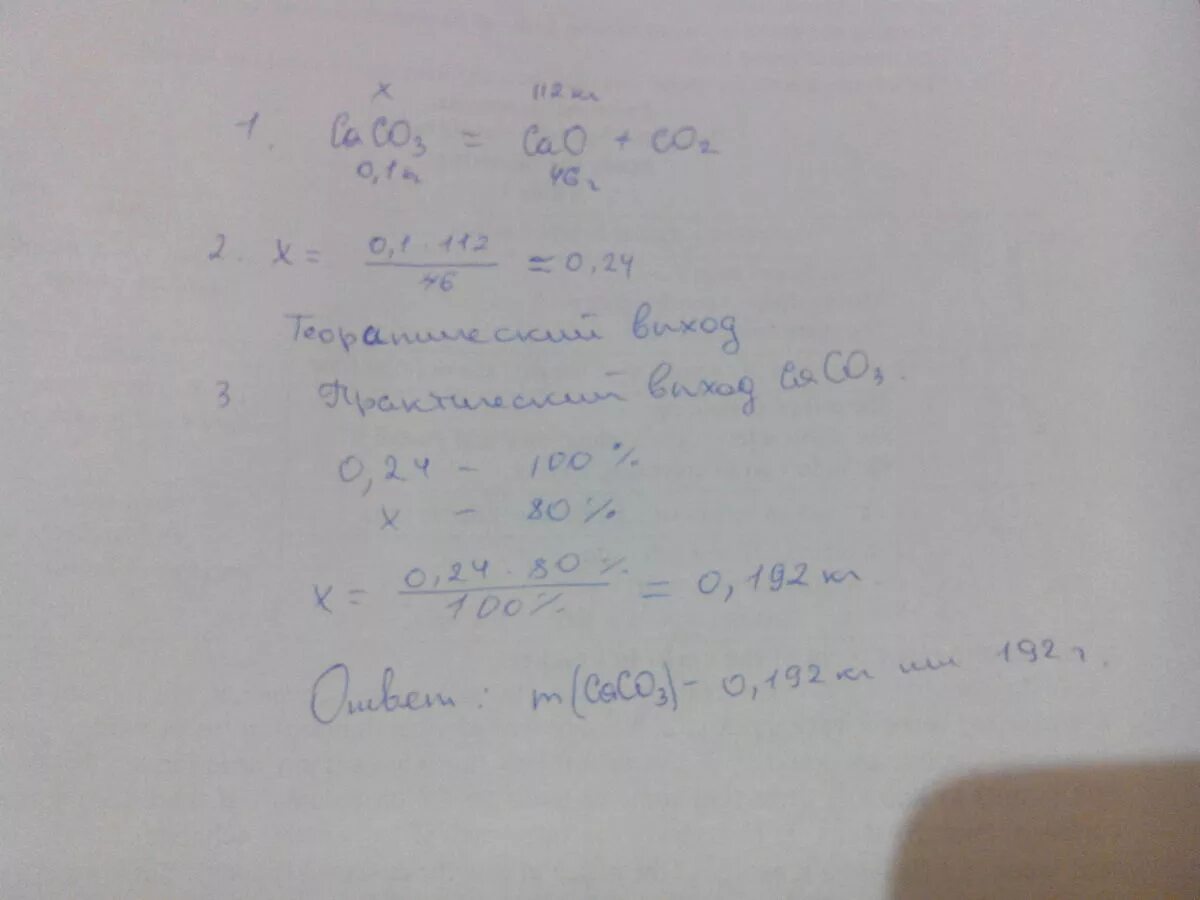 x 112 кг
1. CaCO3 = CaO + CO2
0,1 кг 46 г
2. x = 0,1 · 112 / 46 ≈ 0,24
Теорапический выход
3 Практический выход CaCO3.
0,24 - 100 %
x - 80 %
x = 0,24 · 80 % / 100 % = 0,192 кг
Ответ: m(CaCO3) - 0,192 кг или 192 г.